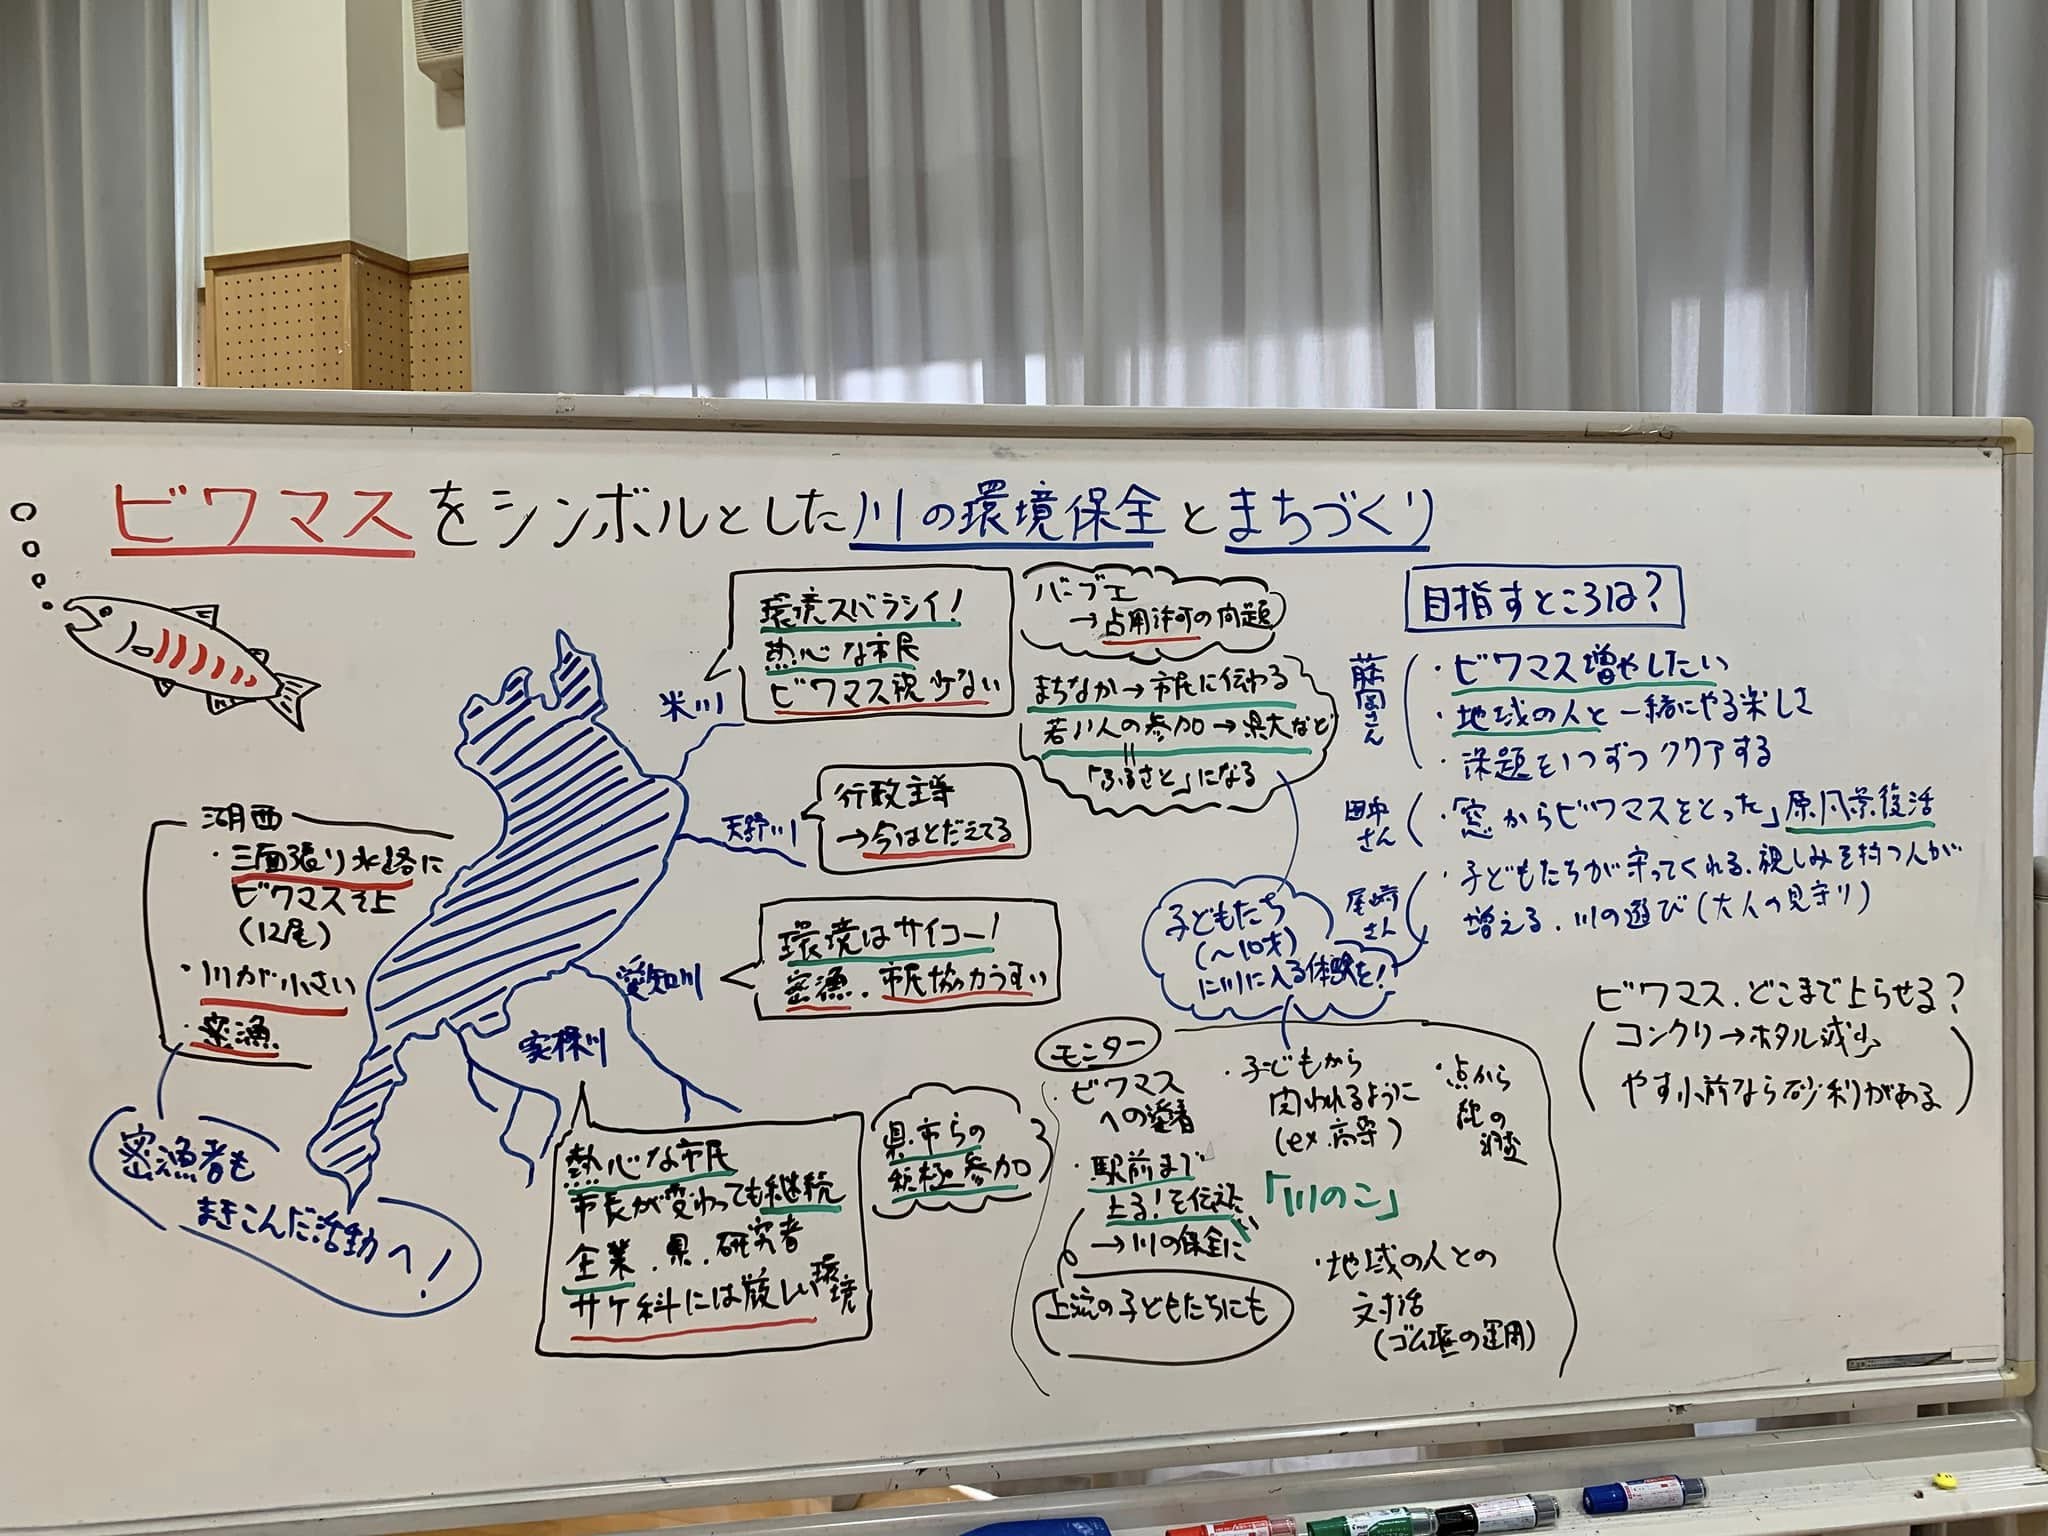 ビワマスをシンボルとした川の環境保全とまちづくり
米川
環境スバラシイ!
熱心な市民
ビワマス祝少ない
バーブエ
→占用許可の問題
まちなか→市民に伝わる
若い人の参加→県大など
「ふるさと」になる
天野川
行政主導
→今はとだえてる
愛知川
環境はサイコー!
密漁.市民協力うすい
湖西
・三面張り水路に
ビワマスそ上
(12尾)
・川が小さい
・密漁
密漁者も
まきこんだ活動へ!
家棟川
熱心な市民
市長が変わっても継続
企業.県.研究者
サケ科には厳しい環境
県.市らの
積極参加
目指すところは?
藤岡さん
・ビワマス増やしたい
・地域の人と一緒にやる楽しさ
・課題を1つずつククアする
田中さん
・「窓からビワマスをとった」原風景復活
尾崎さん
・子どもたちが守ってくれる.親しみを持つ人が
増える.川の遊び(大人の見守り)
子どもたち
(～10才)
に川に入る体験を!
モニター
・ビワマス
への愛着
・駅前まで
上る!を伝えたい
→川の保全に
上流の子どもたちにも
・子どもから
関われるように
(ex.高等)
・点から
「川のこ」
・地域の人との
対話
(ゴム堰の運用)
ビワマス.どこまで上らせる?
コンクリ→ホタル減少
やす小前なら砂利がある